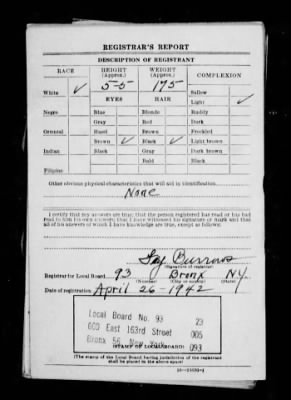 REGISTRAR'S REPORT
DESCRIPTION OF REGISTRANT
RACE HEIGHT (Approx.) WEIGHT (Approx.) COMPLEXION
White ✓ 5-5 175 Sallow
EYES HAIR Light ✓
Negro Blue Blonde Ruddy
Gray Red Dark
Oriental Hazel Brown Freckled
Brown ✓ Black ✓ Light brown
Indian Black Gray Dark brown
Bald Black
Filipino
Other obvious physical characteristics that will aid in identification
None
I certify that my answers are true; that the person registered has read or has had
read to him his own answers; that I have witnessed his signature or mark and that
all of his answers of which I have knowledge are true, except as follows:
Burrows
(Signature of registrar)
Registrar for Local Board 93 Bronx NY
(Number) (City or county) (State)
Date of registration April 26-1942
Local Board No. 93 23
600 East 163rd Street 005
Bronx 56, New York 093
(STAMP OF LOCAL BOARD)
(The stamp of the Local Board having jurisdiction of the registrant
shall be placed in the above space)